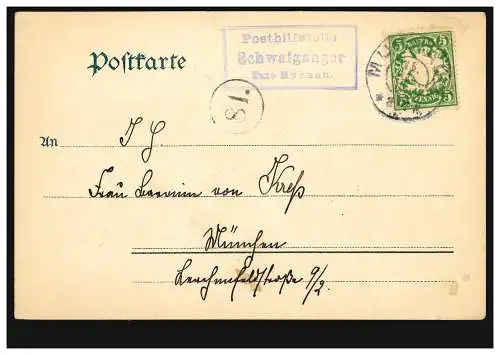 Posthilfsstelle
Schwaiganger
Taxe Murnau.
Postkarte
BAYERN
5 5
PFENNIG
MU
81.
An
I H.
Frau Baronin von Kreß
München
Lerchenfeldstraße 9/2.